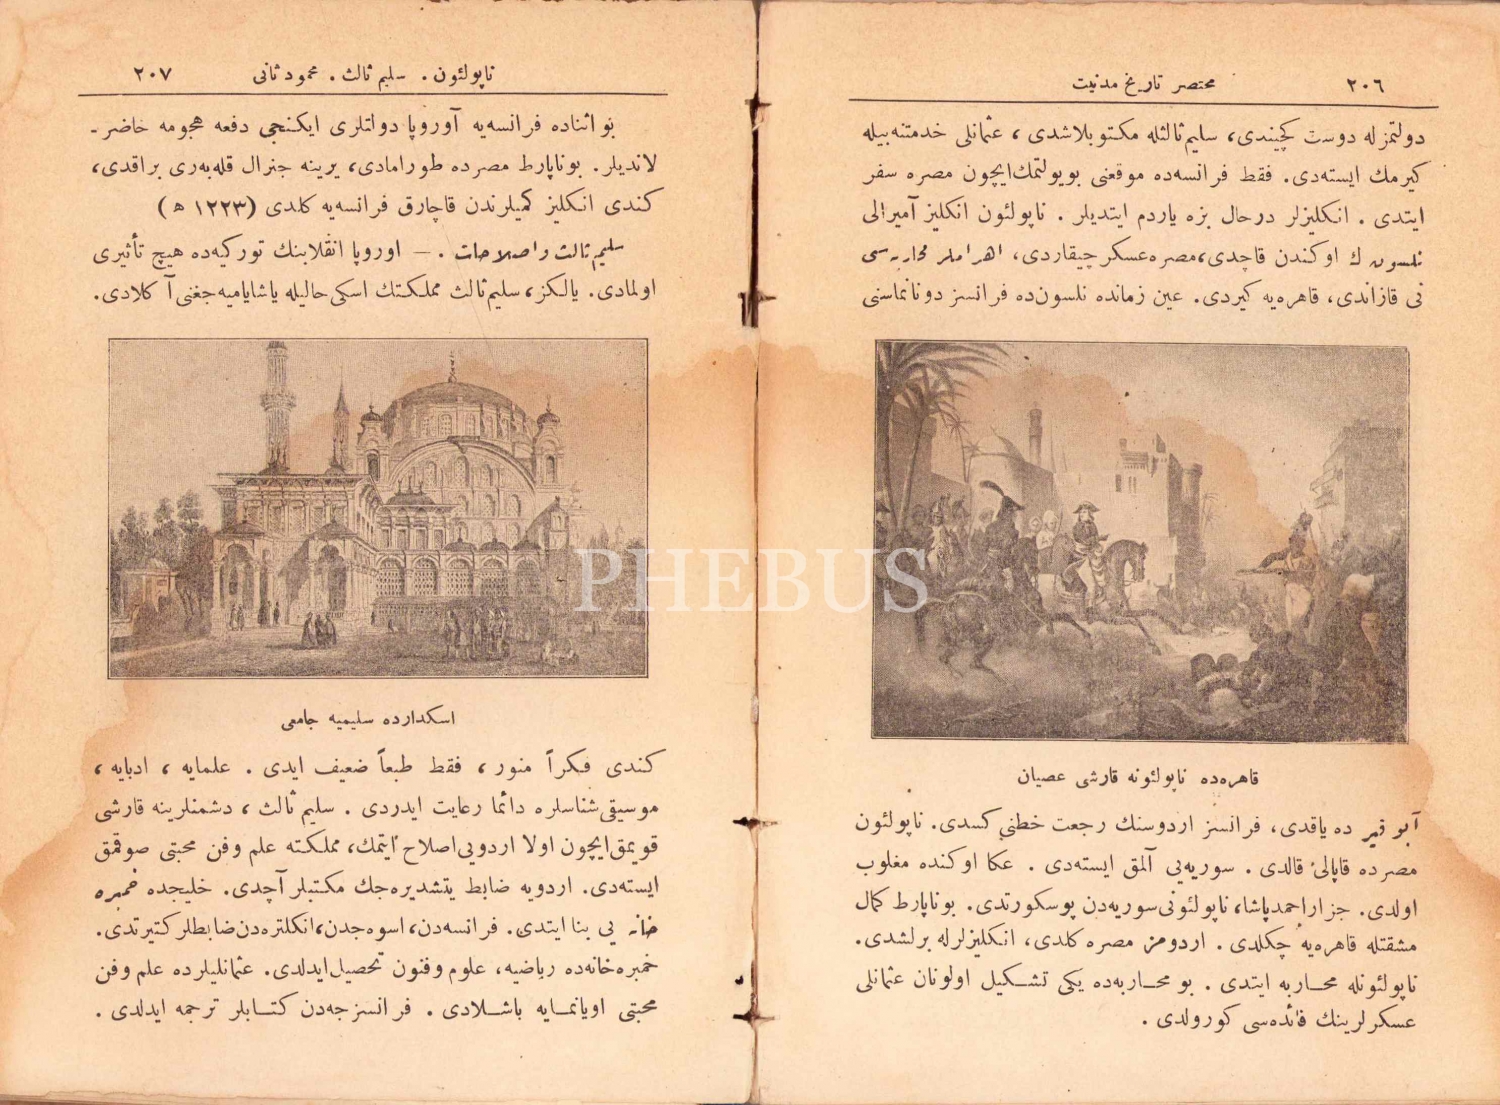 ٢٠٦ مختصر تاريخ مدنيت
دولتمزله دوست كچيندى، سليم ثالثله مكتوبلاشدى، عثمانلى خدمتنه بيله
كيرمك ايسته‌دى. فقط فرانسه‌ده موقعنى بويولتمك ايچون مصره سفر
ايتدى. انكليزلر درحال بزه ياردم ايتديلر. ناپولئون انكليز آميرالى
نلسون ك اوكندن قاچدى، مصره عسكر چيقاردى، اهراملر محاربه‌سى
نى قازاندى، قاهره‌يه كيردى. عين زمانده نلسون‌ده فرانسز دونانماسنى
قاهره‌ده ناپولئونه قارشى عصيان
آبو قير ده ياقدى، فرانسز اردوسنك رجعت خطنى كسدى. ناپولئون
مصرده قاپالى قالدى. سوريه‌يى آلمق ايسته‌دى. عكا اوكنده مغلوب
اولدى. جزار احمد پاشا، ناپولئونى سوريه‌دن پوسكورتدى. بوناپارط كمال
مشقتله قاهره‌يه چكلدى. اردومز مصره كلدى، انكليزلرله برلشدى.
ناپولئونله محاربه ايتدى. بو محاربه‌ده يكى تشكيل اولونان عثمانلى
عسكرلرينك فائده‌سى كورولدى.
ناپولئون. سليم ثالث. محمود ثانى ٢٠٧
بو اثناده فرانسه‌يه آوروپا دولتلرى ايكنجى دفعه هجومه حاضر-
لانديلر. بوناپارط مصرده طورامادى، يرينه جنرال قله‌به‌رى براقدى،
كندى انكليز كميلرندن قاچارق فرانسه‌يه كلدى (١٢٢٣ ه)
سليم ثالث و اصلاحات. — اوروپا انقلابنك توركيه‌ده هيچ تأثيرى
اولمادى. يالكز، سليم ثالث مملكتك اسكى حاليله ياشاياميه‌جغنى آكلادى.
اسكدارده سليميه جامعى
كندى فكراً منور، فقط طبعاً ضعيف ايدى. علمايه، ادبايه،
موسيقى‌شناسلره دائما رعايت ايدردى. سليم ثالث، دشمنلرينه قارشى
قويمق ايچون اولا اردويى اصلاح ايتمك، مملكته علم وفن محبتى صوقمق
ايسته‌دى. اردويه ضابط يتشديره‌جك مكتبلر آچدى. خليجده خمبره
خانه يى بنا ايتدى. فرانسه‌دن، اسوه‌جدن، انكلتره‌دن ضابطلر كتيرتدى.
خمبره‌خانه‌ده رياضيه، علوم وفنون تحصيل ايدلدى. عثمانليلرده علم وفن
محبتى اويانمايه باشلادى. فرانسزجه‌دن كتابلر ترجمه ايدلدى.
PHEBUS